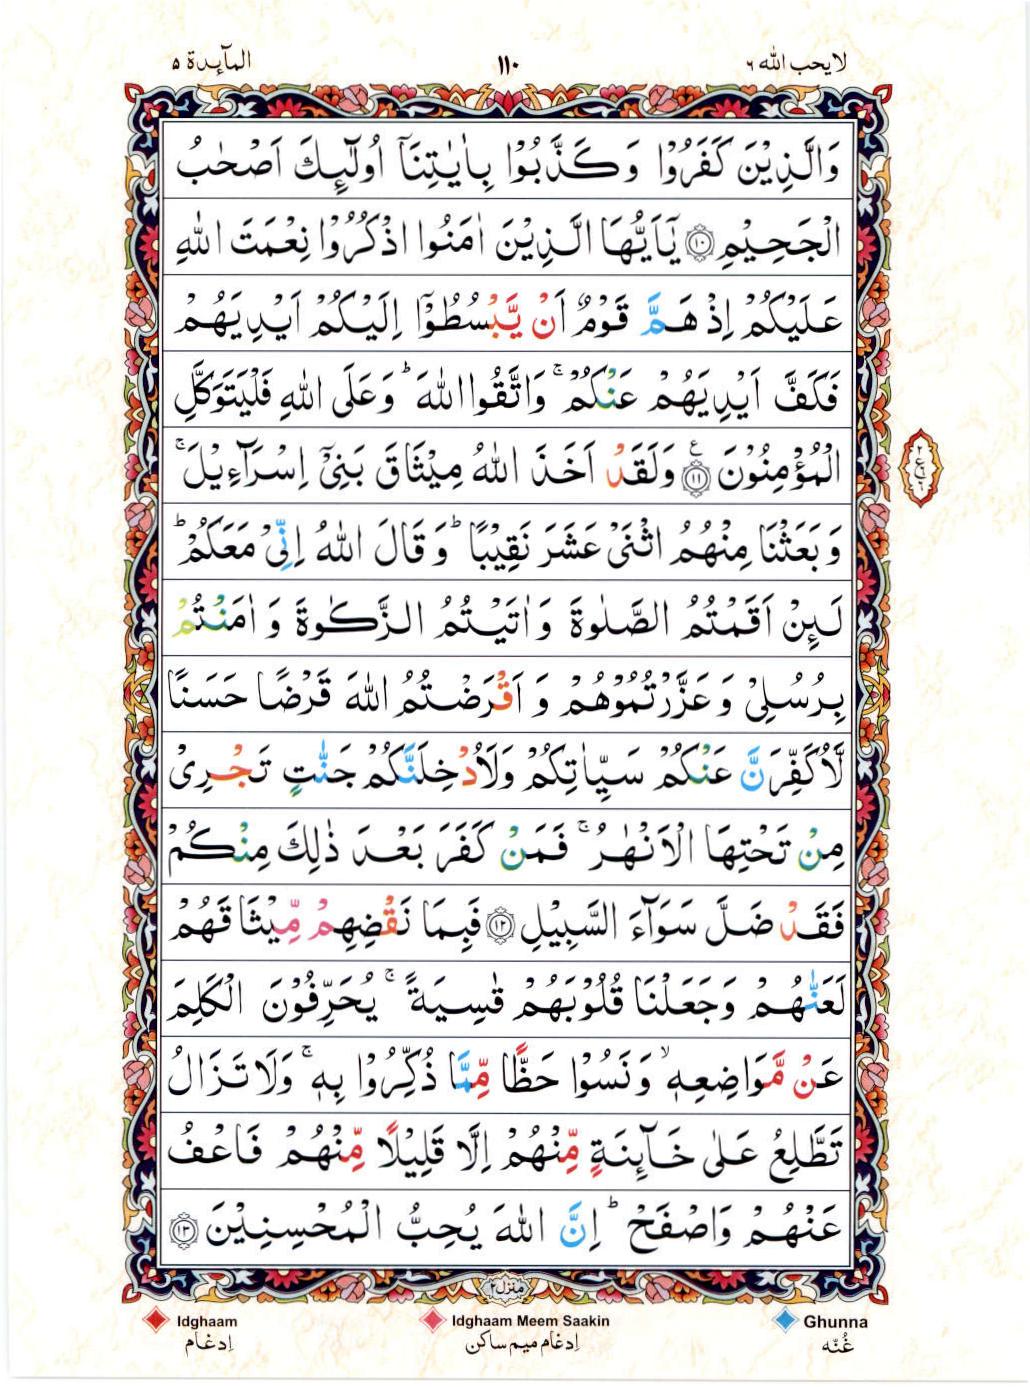 لايحب الله ٦
١١٠
المآىِٕدة ٥
وَالَّذِيْنَ كَفَرُوْا وَكَذَّبُوْا بِاٰيٰتِنَاۤ اُولٰٓىِٕكَ اَصْحٰبُ
الْجَحِيْمِ ۝۱۰ يٰۤاَيُّهَا الَّذِيْنَ اٰمَنُوا اذْكُرُوْا نِعْمَتَ اللّٰهِ
عَلَيْكُمْ اِذْ هَمَّ قَوْمٌ اَنْ يَّبْسُطُوْۤا اِلَيْكُمْ اَيْدِيَهُمْ
فَكَفَّ اَيْدِيَهُمْ عَنْكُمْ ۚ وَاتَّقُوا اللّٰهَ ؕ وَعَلَى اللّٰهِ فَلْيَتَوَكَّلِ
الْمُؤْمِنُوْنَ ۝۱۱ ع وَلَقَدْ اَخَذَ اللّٰهُ مِيْثَاقَ بَنِيْۤ اِسْرَآءِيْلَ ۚ
وَبَعَثْنَا مِنْهُمُ اثْنَيْ عَشَرَ نَقِيْبًا ؕ وَقَالَ اللّٰهُ اِنِّيْ مَعَكُمْ ؕ
لَىِٕنْ اَقَمْتُمُ الصَّلٰوةَ وَاٰتَيْتُمُ الزَّكٰوةَ وَاٰمَنْتُمْ
بِرُسُلِيْ وَعَزَّرْتُمُوْهُمْ وَاَقْرَضْتُمُ اللّٰهَ قَرْضًا حَسَنًا
لَّاُكَفِّرَنَّ عَنْكُمْ سَيِّاٰتِكُمْ وَلَاُدْخِلَنَّكُمْ جَنّٰتٍ تَجْرِيْ
مِنْ تَحْتِهَا الْاَنْهٰرُ ۚ فَمَنْ كَفَرَ بَعْدَ ذٰلِكَ مِنْكُمْ
فَقَدْ ضَلَّ سَوَآءَ السَّبِيْلِ ۝۱۲ فَبِمَا نَقْضِهِمْ مِّيْثَاقَهُمْ
لَعَنّٰهُمْ وَجَعَلْنَا قُلُوْبَهُمْ قٰسِيَةً ۚ يُحَرِّفُوْنَ الْكَلِمَ
عَنْ مَّوَاضِعِهٖ ۙ وَنَسُوْا حَظًّا مِّمَّا ذُكِّرُوْا بِهٖ ۚ وَلَا تَزَالُ
تَطَّلِعُ عَلٰى خَآىِٕنَةٍ مِّنْهُمْ اِلَّا قَلِيْلًا مِّنْهُمْ فَاعْفُ
عَنْهُمْ وَاصْفَحْ ؕ اِنَّ اللّٰهَ يُحِبُّ الْمُحْسِنِيْنَ ۝۱۳
منزل ٢
Idghaam Idghaam Meem Saakin Ghunna
اِدغام اِدغام میم ساکن غُنّه